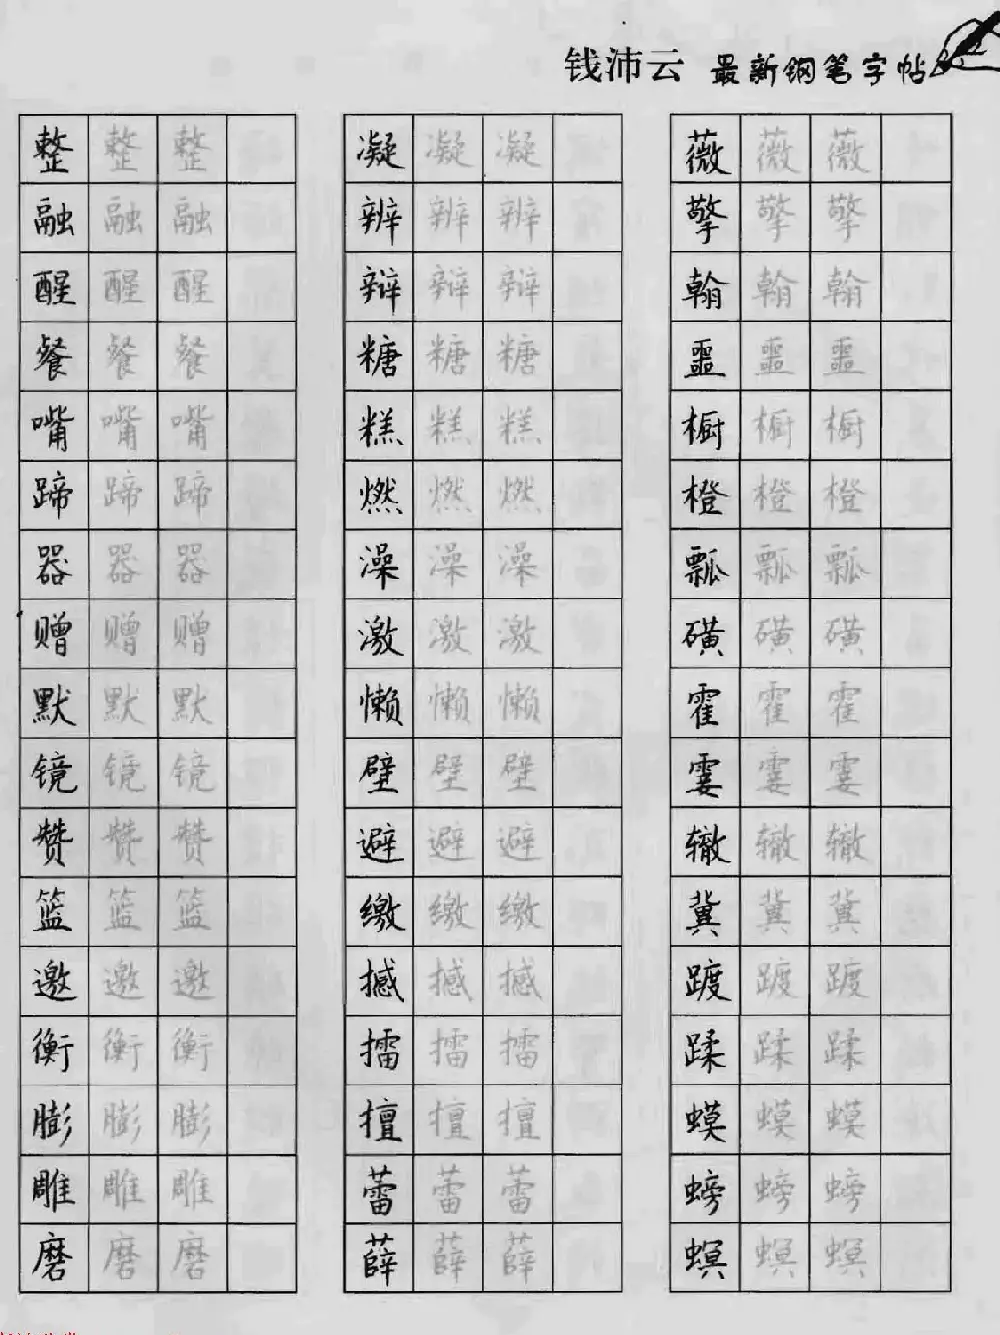 钱沛云 最新钢笔字帖
整 整 整 凝 凝 凝 薇 薇 薇
融 融 融 辨 辨 辨 擎 擎 擎
醒 醒 醒 辩 辩 辩 翰 翰 翰
餐 餐 餐 糖 糖 糖 噩 噩 噩
嘴 嘴 嘴 糕 糕 糕 橱 橱 橱
蹄 蹄 蹄 燃 燃 燃 橙 橙 橙
器 器 器 澡 澡 澡 瓢 瓢 瓢
赠 赠 赠 激 激 激 磺 磺 磺
默 默 默 懒 懒 懒 霍 霍 霍
镜 镜 镜 壁 壁 壁 霎 霎 霎
赞 赞 赞 避 避 避 辙 辙 辙
篮 篮 篮 缴 缴 缴 冀 冀 冀
邀 邀 邀 撼 撼 撼 踱 踱 踱
衡 衡 衡 擂 擂 擂 蹂 蹂 蹂
膨 膨 膨 擅 擅 擅 蟆 蟆 蟆
雕 雕 雕 蕾 蕾 蕾 螃 螃 螃
磨 磨 磨 薛 薛 薛 螟 螟 螟